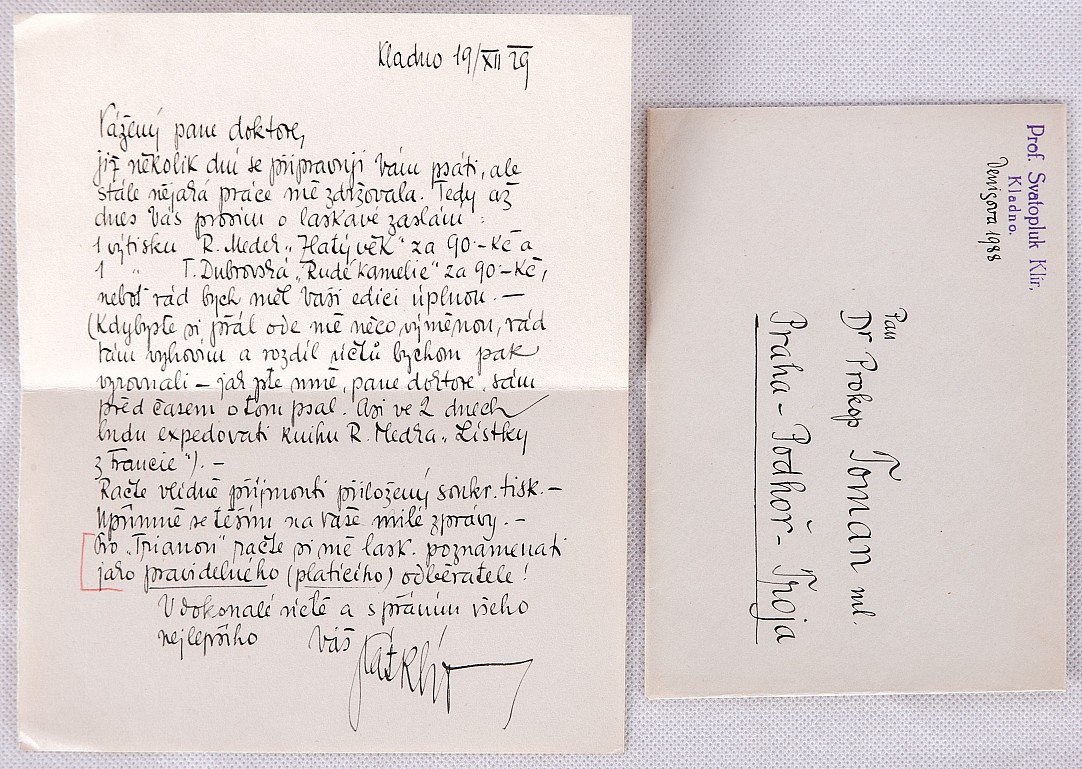 Kladno 19/XII 29
Vážený pane doktore,
již několik dnů se připravuji Vám psáti, ale
stále nějaká práce mě zdržovala. Tedy až
dnes Vás prosím o laskavé zaslání:
1 výtisku R. Medek „Zlatý věk“ za 90·-Kč a
1 " T. Dubrovská „Rudé kamelie“ za 90·-Kč,
neboť rád bych měl Vaši edici úplnou. —
(Kdybyste si přál ode mě něco výměnou, rád
Vám vyhovím a rozdíl účtů bychom pak
vyrovnali – jak jste mně, pane doktore, sám
před časem o tom psal. Asi ve 2 dnech
budu expedovati knihu R. Medka „Lístky
z Francie“). –
Račte vlídně přijmouti přiložený soukr. tisk. –
Upřímně se těším na Vaše milé zprávy. –
Pro „Trianon“ račte si mě lask. poznamenati
jako pravidelného (platícího) odběratele!
V dokonalé úctě a s přáním všeho
nejlepšího Váš
Prof. Svatopluk Klír,
Kladno.
1988
Pan
Dr Prokop Toman ml.
Praha - Podhoř - Troja